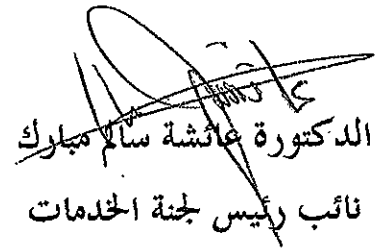 الدكتورة عائشة سالم مبارك
نائب رئيس لجنة الخدمات